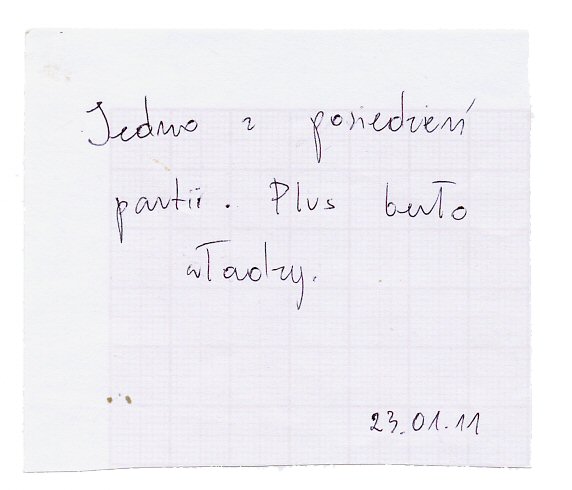 Jedno z posiedzeń
partii. Plus berło
władzy.
23.01.11